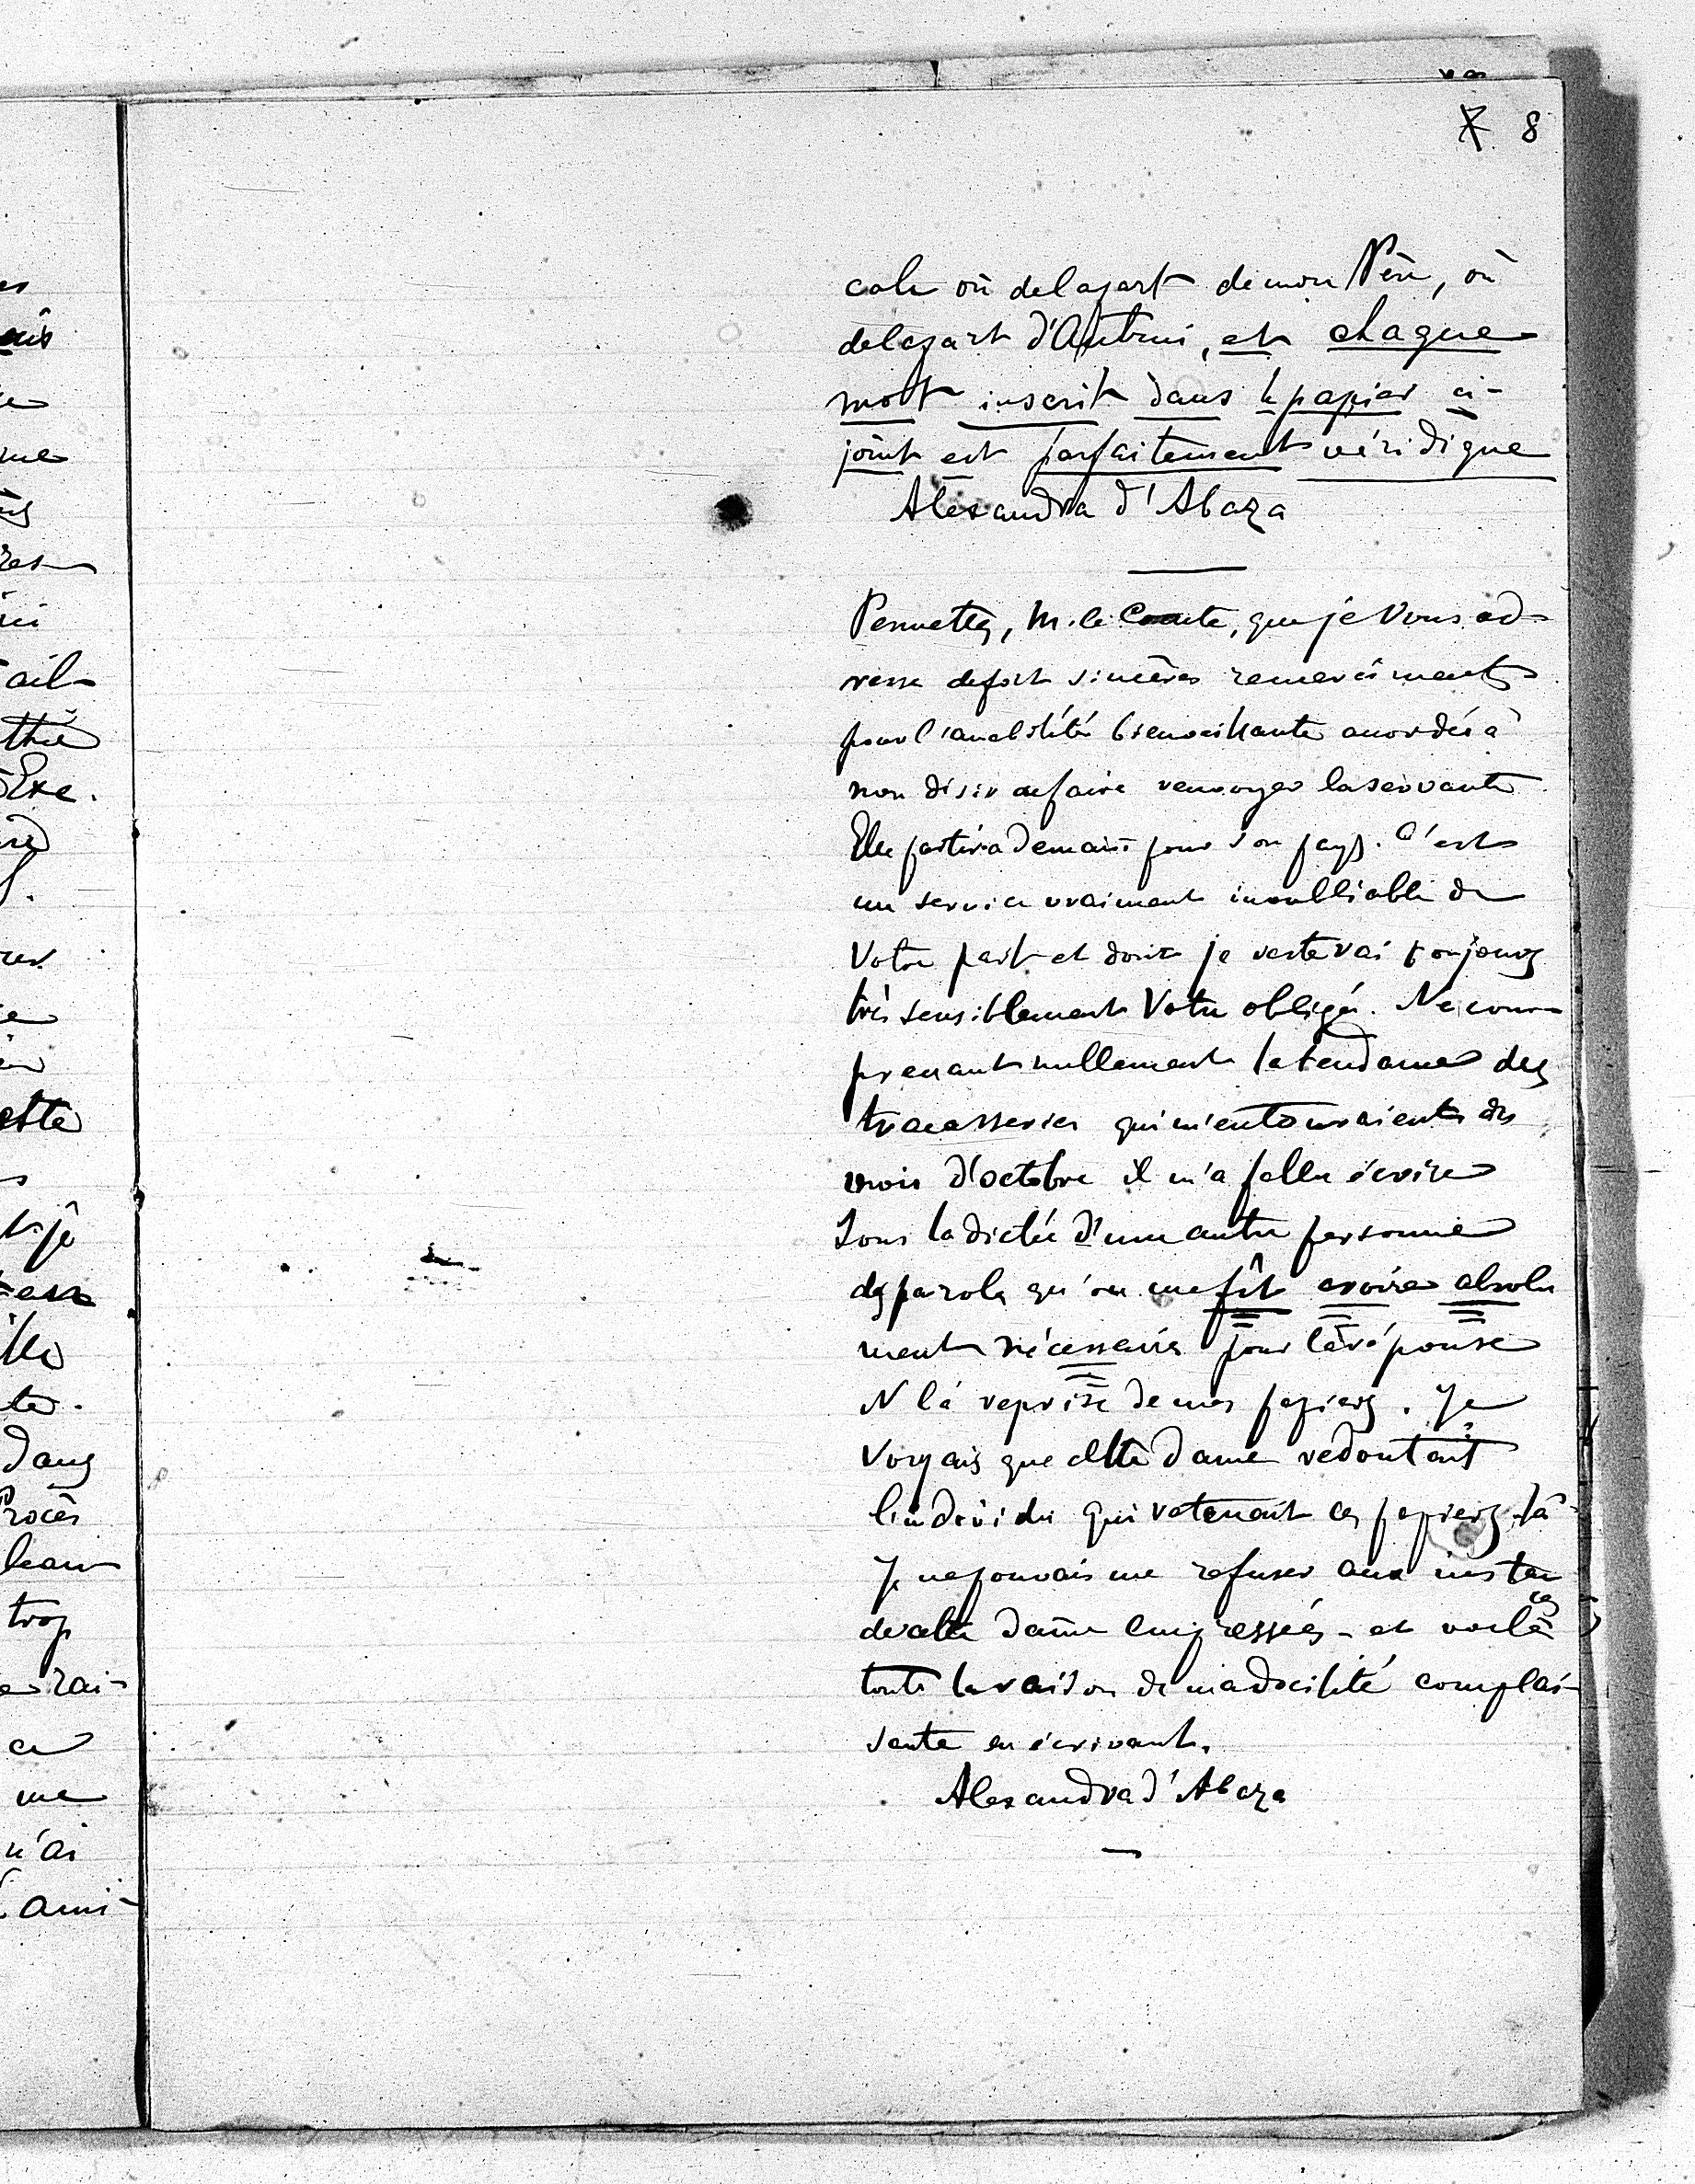 8
cale où de la part de mon Père, où
de la part d'Autrui, et chaque
mot inscrit dans le papier ci-
joint est parfaitement véridique
Alexandra d'Abaza
Permettez, M. le Comte, que je Vous ad-
resse de fort sincères remerciments
pour l'amabilité bienveillante accordée à
mon désir de faire renvoyer la servante
Elle partira demain pour son pays. C'est
un service vraiment inoubliable de
Votre part et dont je resterai toujours
très sensiblement Votre obligée. Ne com-
prenant nullement la tendance des
tracasseries qui m'entouraient dès
mois d'octobre il m'a fallu écrire
sous la dictée d'une autre personne
des paroles qu'on me fît croire absolu
ment nécessaires pour la réponse
la reprise de mes papiers. Je
voyais que cette dame redoutait
l'individu qui retenait ces papiers-là
Je ne pouvais me refuser aux instan
ces
de cette dame empressée - et voilà
toute la raison de ma docilité complai-
sante en écrivant.
Alexandra d'Abaza
ail-
Exe.
cette
dans
Procès
trop
rai-
ce
me
n'ai
ami-